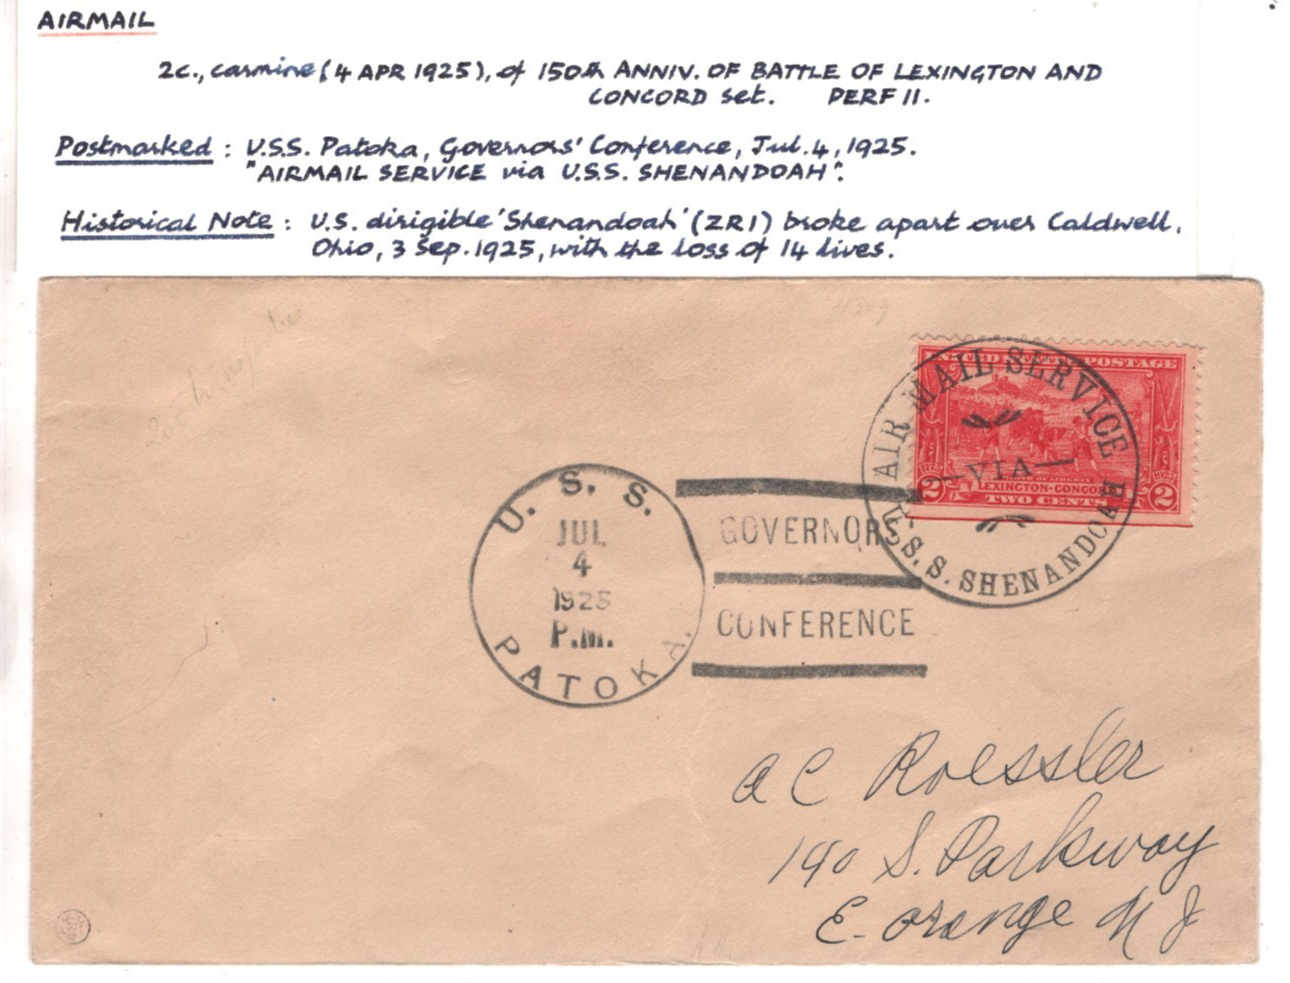 AIRMAIL
2c., carmine (4 APR 1925), of 150th ANNIV. OF BATTLE OF LEXINGTON AND
CONCORD set. PERF 11.
Postmarked : U.S.S. Patoka, Governors' Conference, Jul. 4, 1925.
"AIRMAIL SERVICE via U.S.S. SHENANDOAH".
Historical Note : U.S. dirigible 'Shenandoah' (ZR1) broke apart over Caldwell,
Ohio, 3 Sep. 1925, with the loss of 14 lives.
UNITED STATES POSTAGE
AIR MAIL SERVICE
VIA
U.S.S. SHENANDOAH
LEXINGTON-CONCORD
2 TWO CENTS 2
U. S. S.
JUL
4
1925
P.M.
PATOKA.
GOVERNORS
CONFERENCE
A C Roessler
140 S. Parkway
E. Orange N J